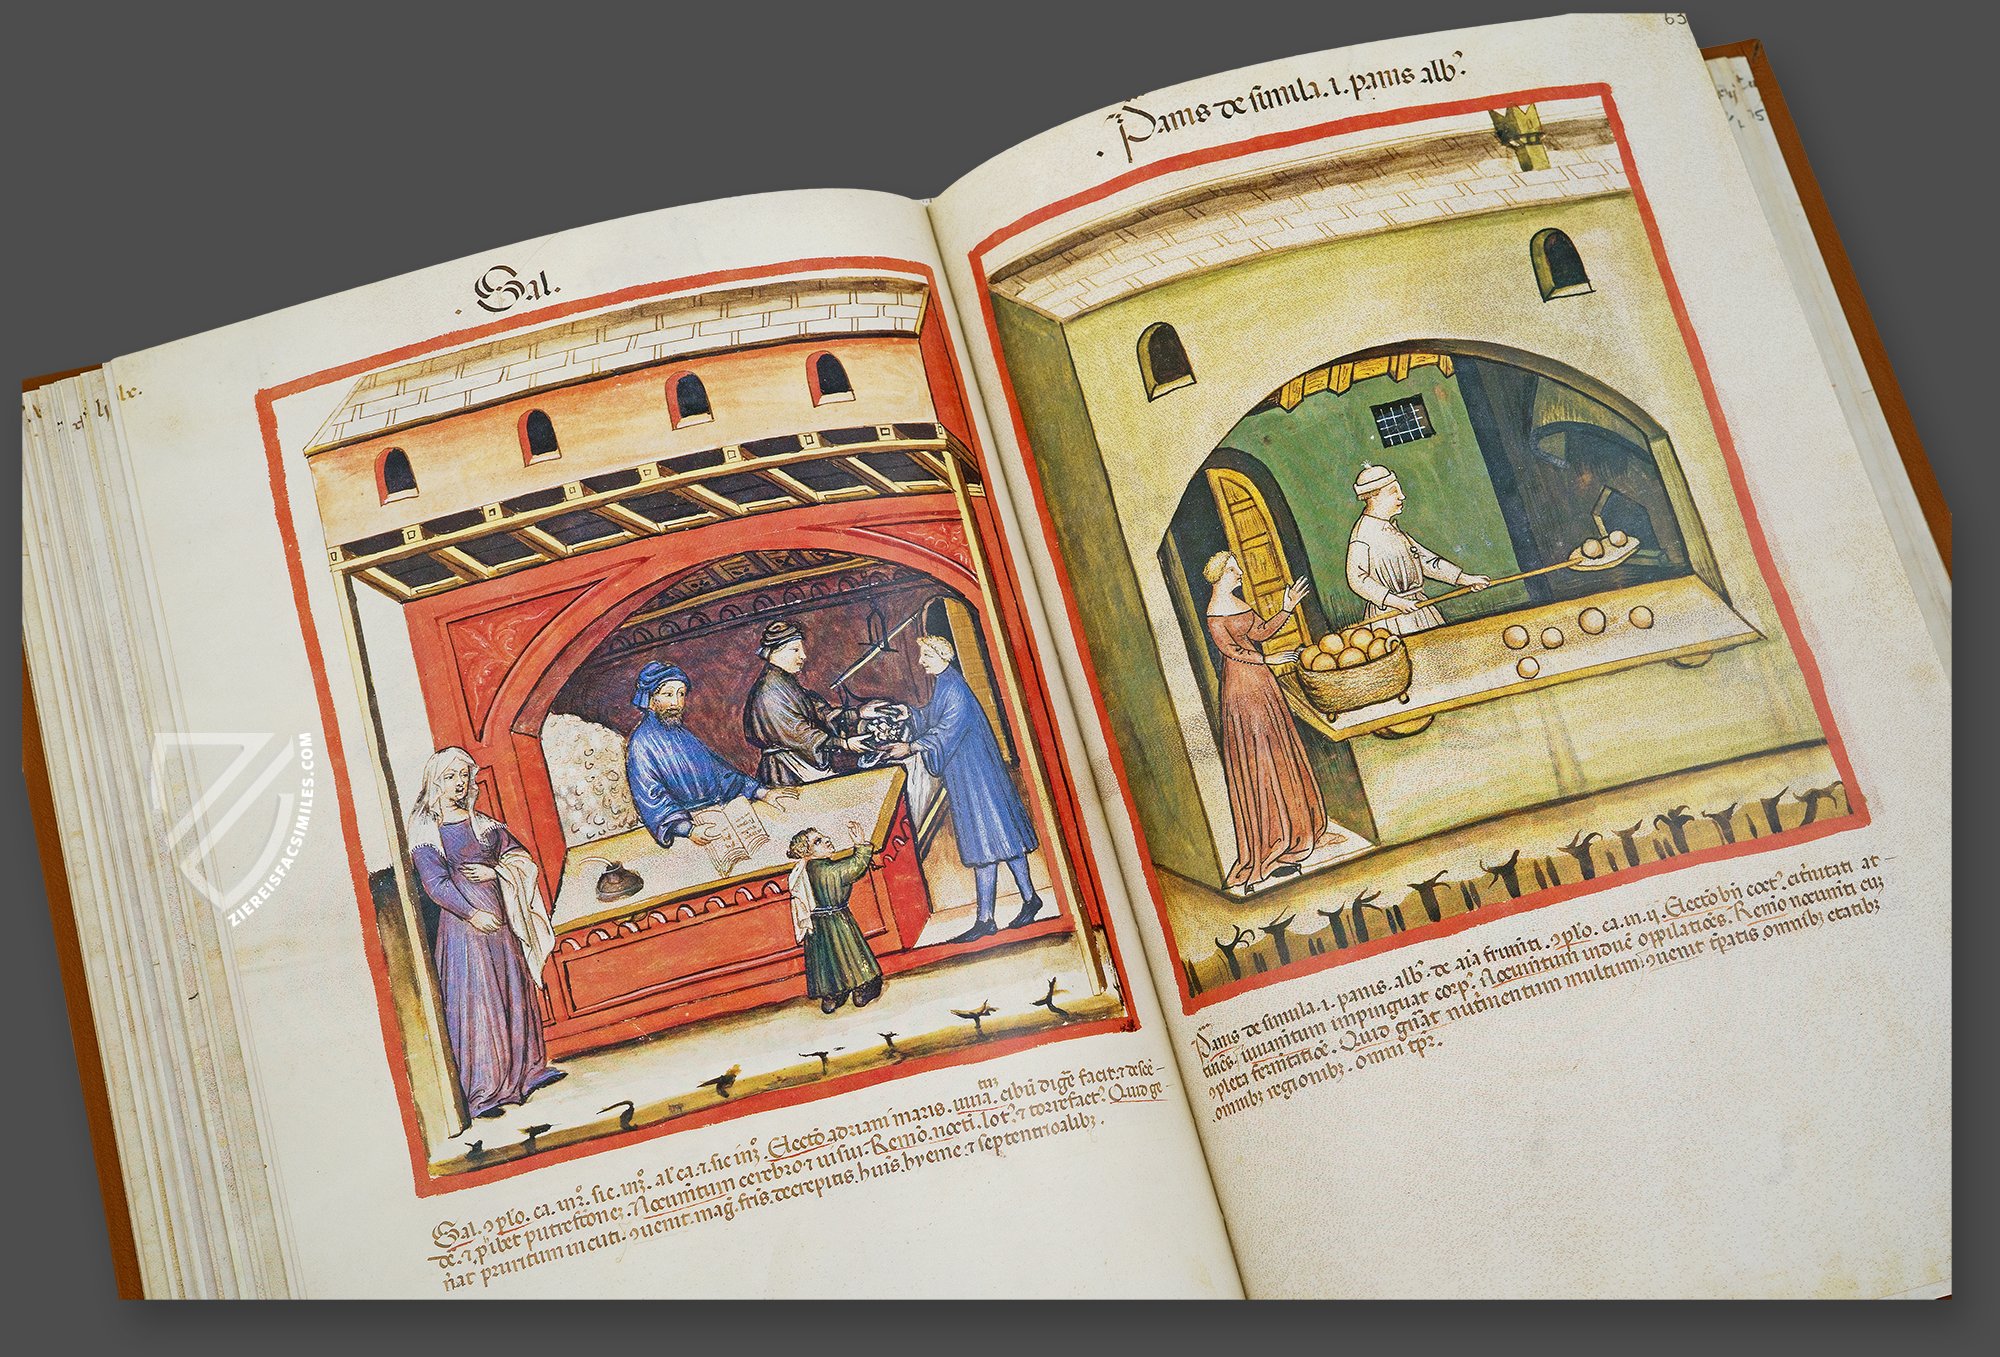 Sal.
Sal. 9plo. ca. in 2°. sic. in 3°. al' ca. ⁊. sic in 3°. Electō adriani maris. iuua.
tuȝ
cibū digē facit ⁊ descē-
dē. ⁊. p̱ibet putrefctōneȝ. Nocum̄tum cerebro ⁊ uisui. Remō. nocti. lot° ⁊ torrefact°. Quid ge-
n̄at pruritum in cuti. 9uenit. mag̣. fris. decrepitis. huis. hyeme ⁊ septentrioalibȝ.
63
Panis de simila. i. panis alb⁹.
Panis de simila. i. panis. alb⁹. de aīa frumēti. 9plo. ca. in. ij. Electō bn̄ coct⁹. citrinitati at-
tinēs. iuuam̄tum impinguat corp⁹. Nocum̄tum induc̄ opilatiōes. Remō nocum̄ti cuȝ
9pleta fermtatiōe. Quid gn̄at nutrimentum multum. 9uenit tp̄atis. omnibȝ etatibȝ
omnibȝ regionibȝ. omni tpr̄.
ZIEREISFACSIMILES.COM